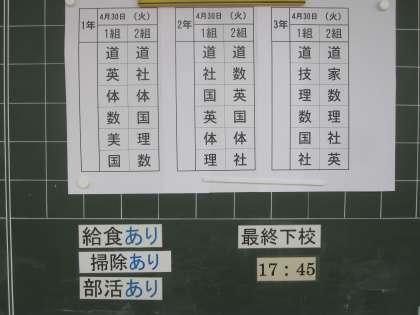 1年 4月30日 (火) 2年 4月30日 (火) 3年 4月30日 (火)
1組 2組 1組 2組 1組 2組
道 道 道 道 道 道
英 社 社 数 技 家
体 体 国 英 理 数
数 国 英 国 数 理
美 理 体 体 国 社
国 数 理 社 社 英
給食あり
掃除あり
部活あり
最終下校
17：45